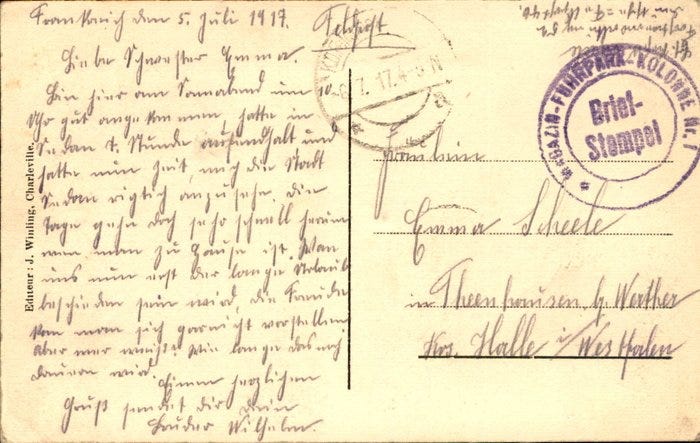 Frankreich den 5. Juli 1917.
Feldpost
Liebe Schwester Emma.
Bin hier am Sonnabend um 10
Uhr gut angekommen, hatte in
Sedan 8. Stunde aufendhalt und
hatte nun Zeit, mich die Stadt
Sedan richtig anzusehe. Die
Tage gehn doch sehr schnell herum
wen man zu Hause ist. Wan
uns nun erst der lange Urlaub
beschieden sein wird, die Freude
kan man sich garnicht vorstellen
Aber wer weiß wie lange das noch
dauern wird. Einen herzlichen
Gruß sendet dir dein
Bruder Wilhelm.
Editeur: J. Winling, Charleville.
7. 17. 4-5 N
MAGAZIN-FUHRPARK-KOLONNE N. 7
Brief-
Stempel
Fräulein
Emma Scheele
in Theenhausen b Werther
Krs. Halle i/Westfalen